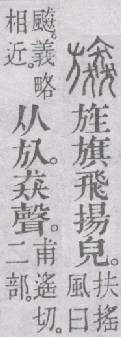 旌旗飛揚皃。
扶搖
風曰
飆。義略
相近。
从㫃。猋聲。
甫遙切。
二部。